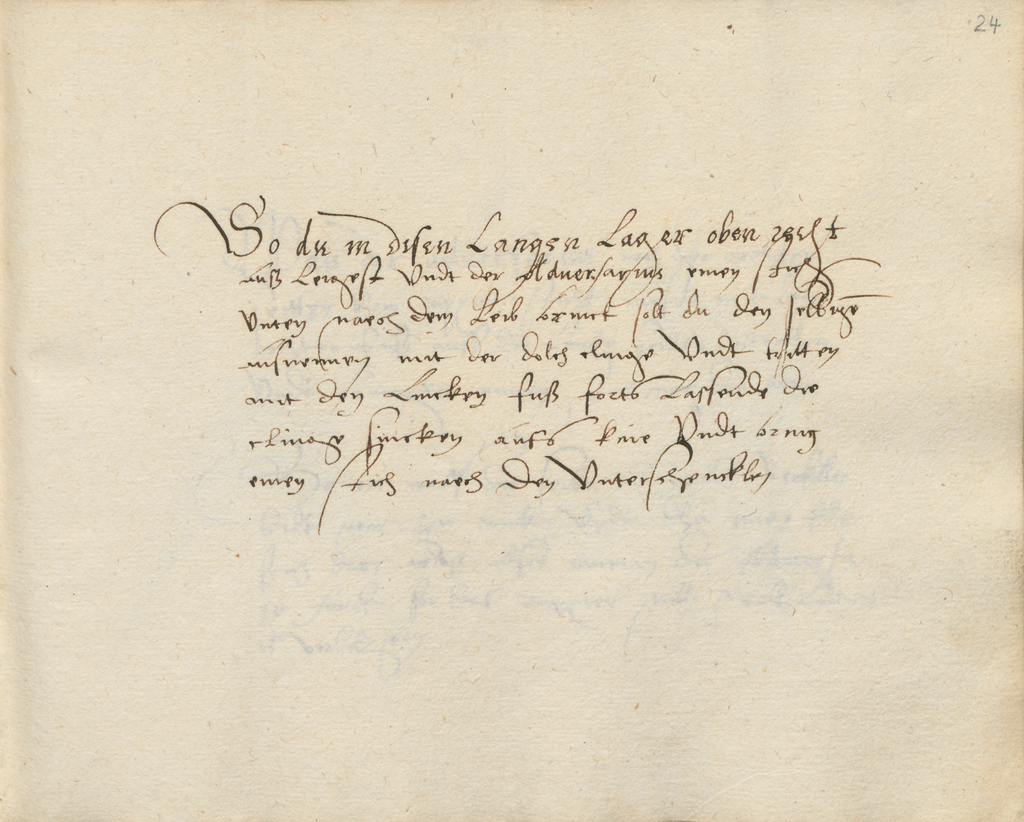 24
So du in disen Langen Lager oben recht
auß Leigest Undt der Adversarius einen stich
Unten naech dem Leib brinct solt du den selbigē
ausnemen mit der dolch clinge Undt tritten
mit den Lincken fuß forts Lassende die
clinge sincken aufs knie Undt bring
einen stich naech den Unterschencklen